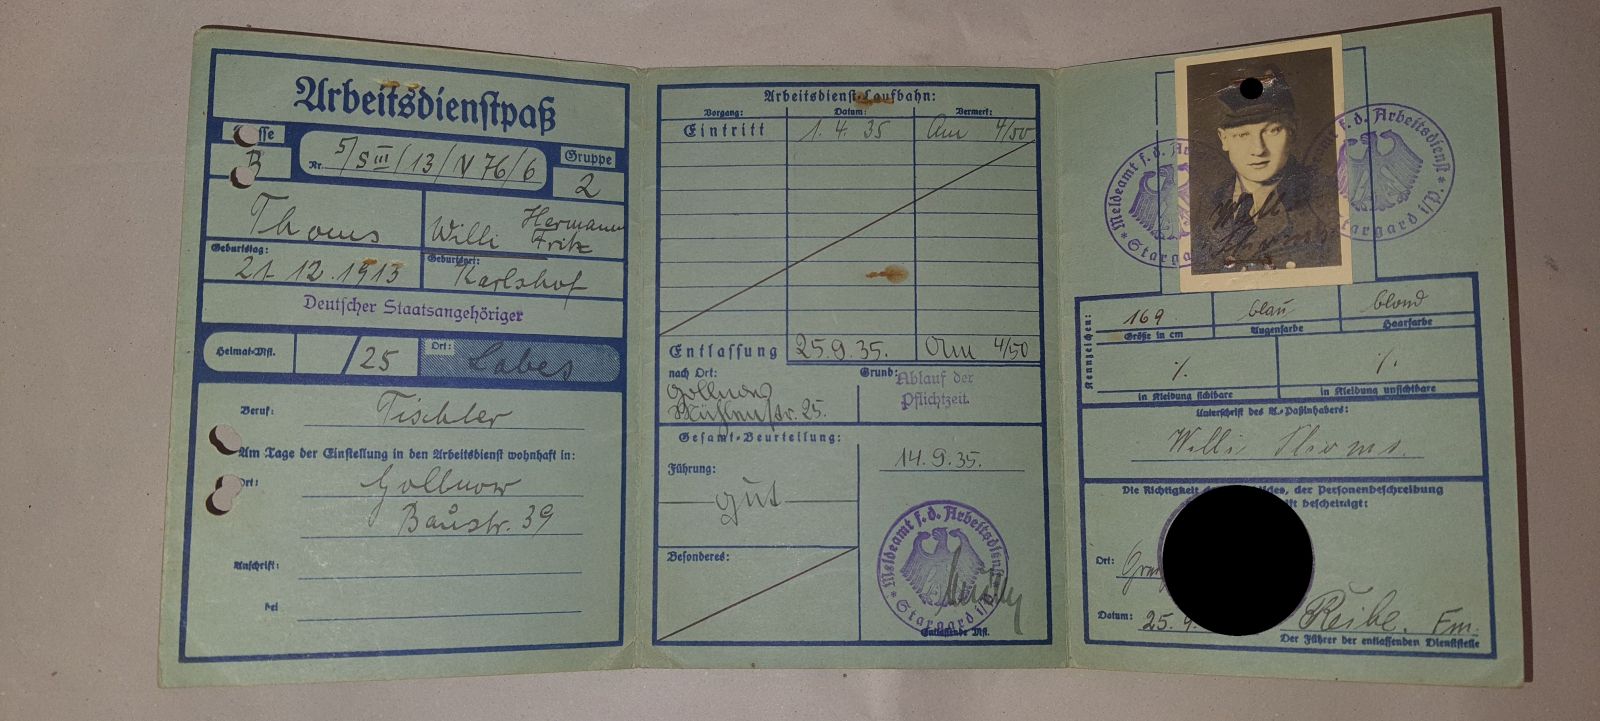 Arbeitsdienstpaß
Gruppe
B
Nr. 5/S III/13/N 76/6
2
Thoms
Willi Hermann
Fritz
Geburtstag:
21.12.1913
Geburtsort:
Karlshof
Deutscher Staatsangehöriger
Heimat-Mst.
/25
Ort:
Labes
Beruf:
Tischler
Am Tage der Einstellung in den Arbeitsdienst wohnhaft in:
Ort:
Gollnow
Baustr. 39
Anschrift:
bei
Arbeitsdienst-Laufbahn:
Vorgang:
Datum:
Vermerk:
Eintritt
1.4.35
Am 4/50
Entlassung
25.9.35.
Am 4/50
nach Ort:
Gollnow
Mühlenstr. 25.
Grund:
Ablauf der
Pflichtzeit.
Gesamt-Beurteilung:
14.9.35.
Führung:
gut
Besonderes:
Meldeamt f.d. Arbeitsdienst
Stargard i/P.
Entlassende Mst.
Meldeamt f. d. Ar
Starga
f. d. Arbeitsdienst
Stargard i/P.
Willi
Thoms
Kennzeichen:
169
Größe in cm
blau
Augenfarbe
blond
Haarfarbe
%
in Kleidung sichtbare
%
in Kleidung unsichtbare
Unterschrift des A.-Paßinhabers:
Willi Thoms.
Die Richtigkeit des Bildes, der Personenbeschreibung
bescheinigt:
Ort:
Datum:
25.9.
Reihe. Fm.
Der Führer der entlassenden Dienststelle